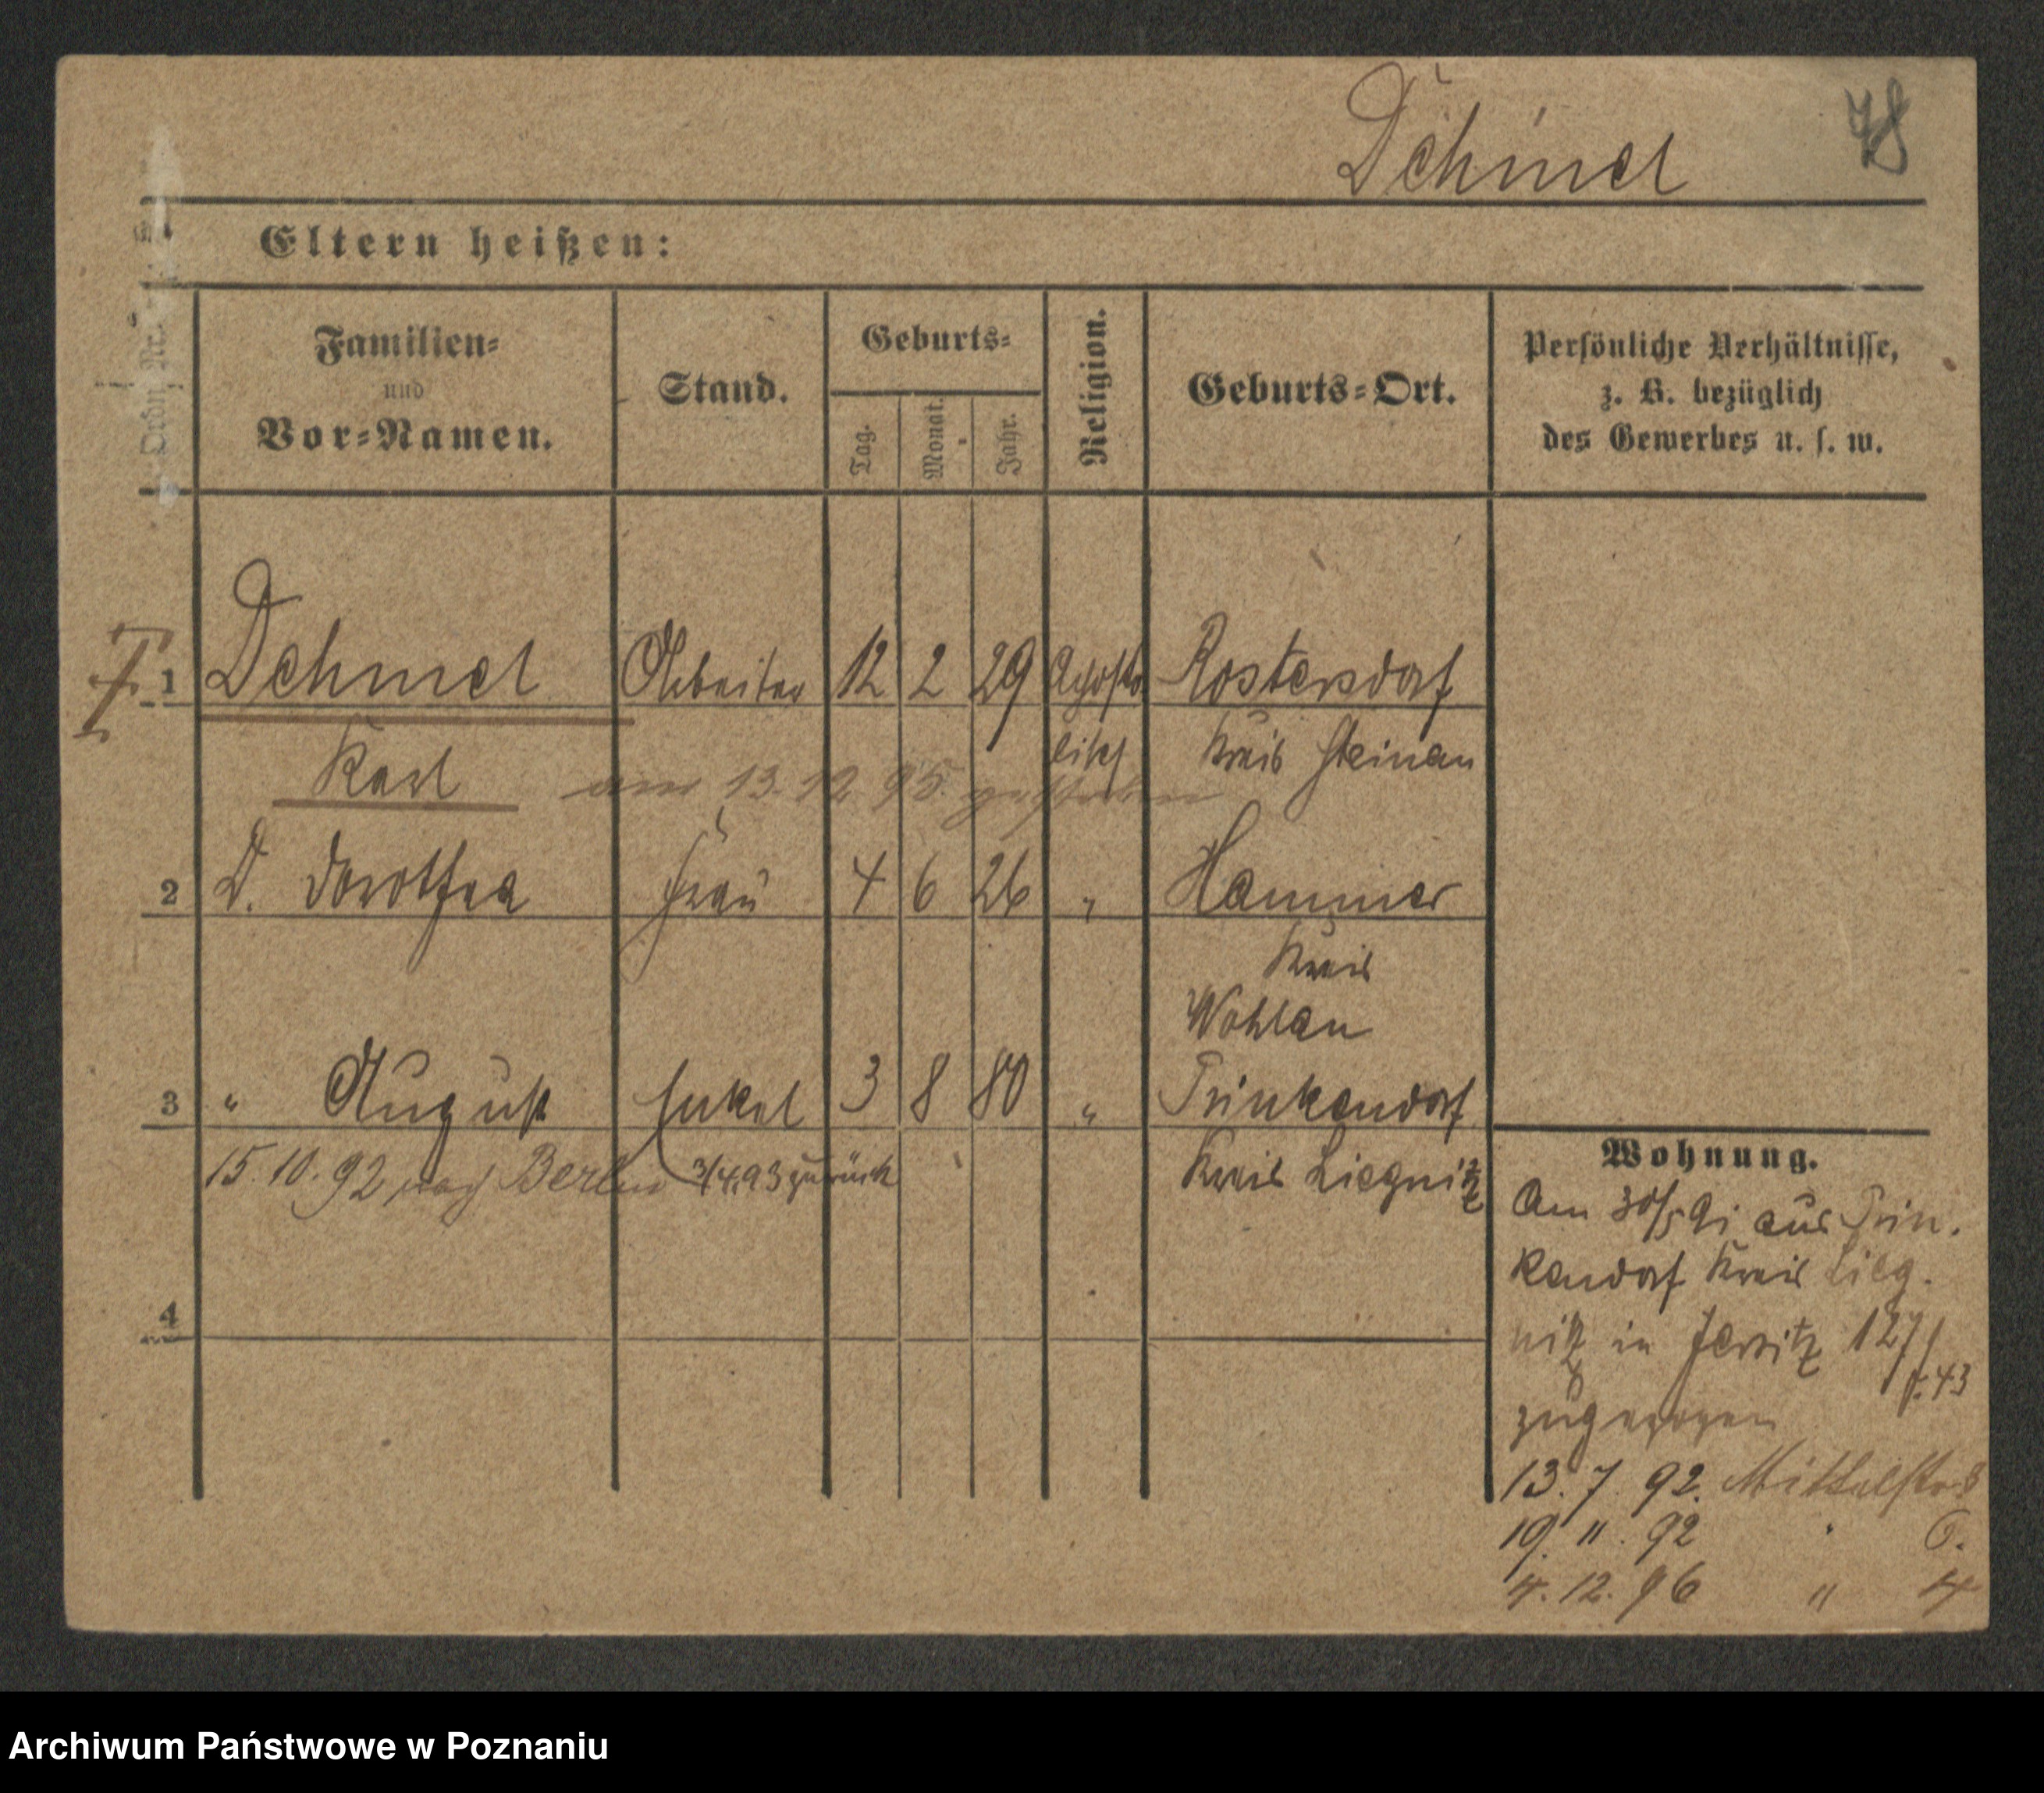 Dehmel 78
Eltern heißen:
Ordn. Nr.
Familien-
und
Vor-Namen.
Stand.
Geburts-
Tag.
Monat.
Jahr.
Religion.
Geburts-Ort.
Persönliche Verhältnisse,
z. B. bezüglich
des Gewerbes u. s. w.
1 Dehmel Arbeiter 12 2 29 Rostersdorf
Karl Kreis Steinau
am 13. 12. 95. gestorben
2 D. Dorothea Frau 4 6 26 " Hammer
Kreis
Wohlau
3 " August Enkel 3 8 80 " Prinkendorf
15. 10. 92 nach Berlin 3/4.93 zurück Kreis Liegnitz
4
Wohnung.
Am 30/5 91 aus Prin.
kendorf Kreis Lieg.
nitz in Jersitz 127/
F. 43
zugezogen
13. 7. 92. Mittelstr. 8
19. 11. 92 " 6.
4. 12. 96 " 4
Archiwum Państwowe w Poznaniu